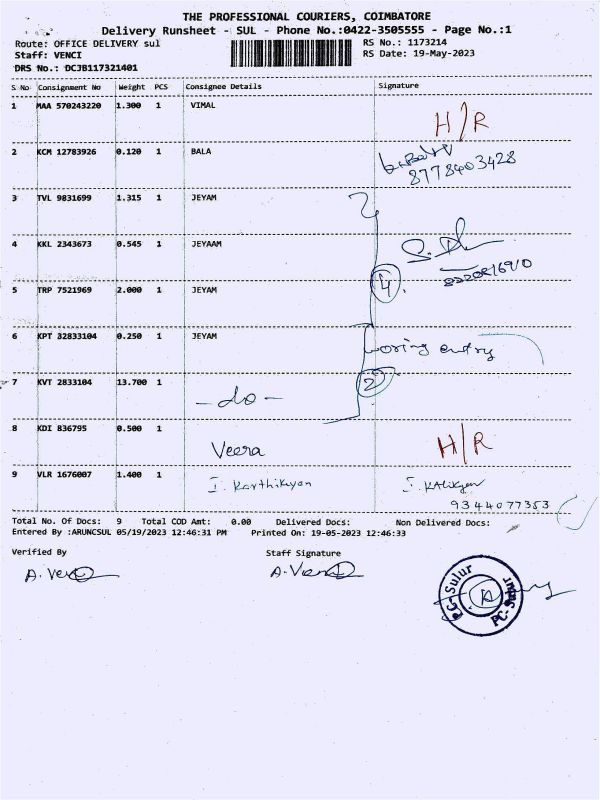 THE PROFESSIONAL COURIERS, COIMBATORE
Delivery Runsheet - SUL - Phone No.:0422-3505555 - Page No.:1
Route: OFFICE DELIVERY sul RS No.: 1173214
Staff: VENCI RS Date: 19-May-2023
DRS No.: DCJB117321401
S No Consignment No Weight PCS Consignee Details Signature
1 MAA 570243220 1.300 1 VIMAL H/R
2 KCM 12783926 0.120 1 BALA
8778403428
3 TVL 9831699 1.315 1 JEYAM
4 KKL 2343673 0.545 1 JEYAAM
4
5 TRP 7521969 2.000 1 JEYAM
6 KPT 32833104 0.250 1 JEYAM woring entry
7 KVT 2833104 13.700 1 -do- 2
8 KDI 836795 0.500 1 Veera H/R
9 VLR 1676007 1.400 1 I. Karthikeyan
9344077353
Total No. Of Docs: 9 Total COD Amt: 0.00 Delivered Docs: Non Delivered Docs:
Entered By :ARUNCSUL 05/19/2023 12:46:31 PM Printed On: 19-05-2023 12:46:33
Verified By Staff Signature
PC-Sulur
PC-Sulur